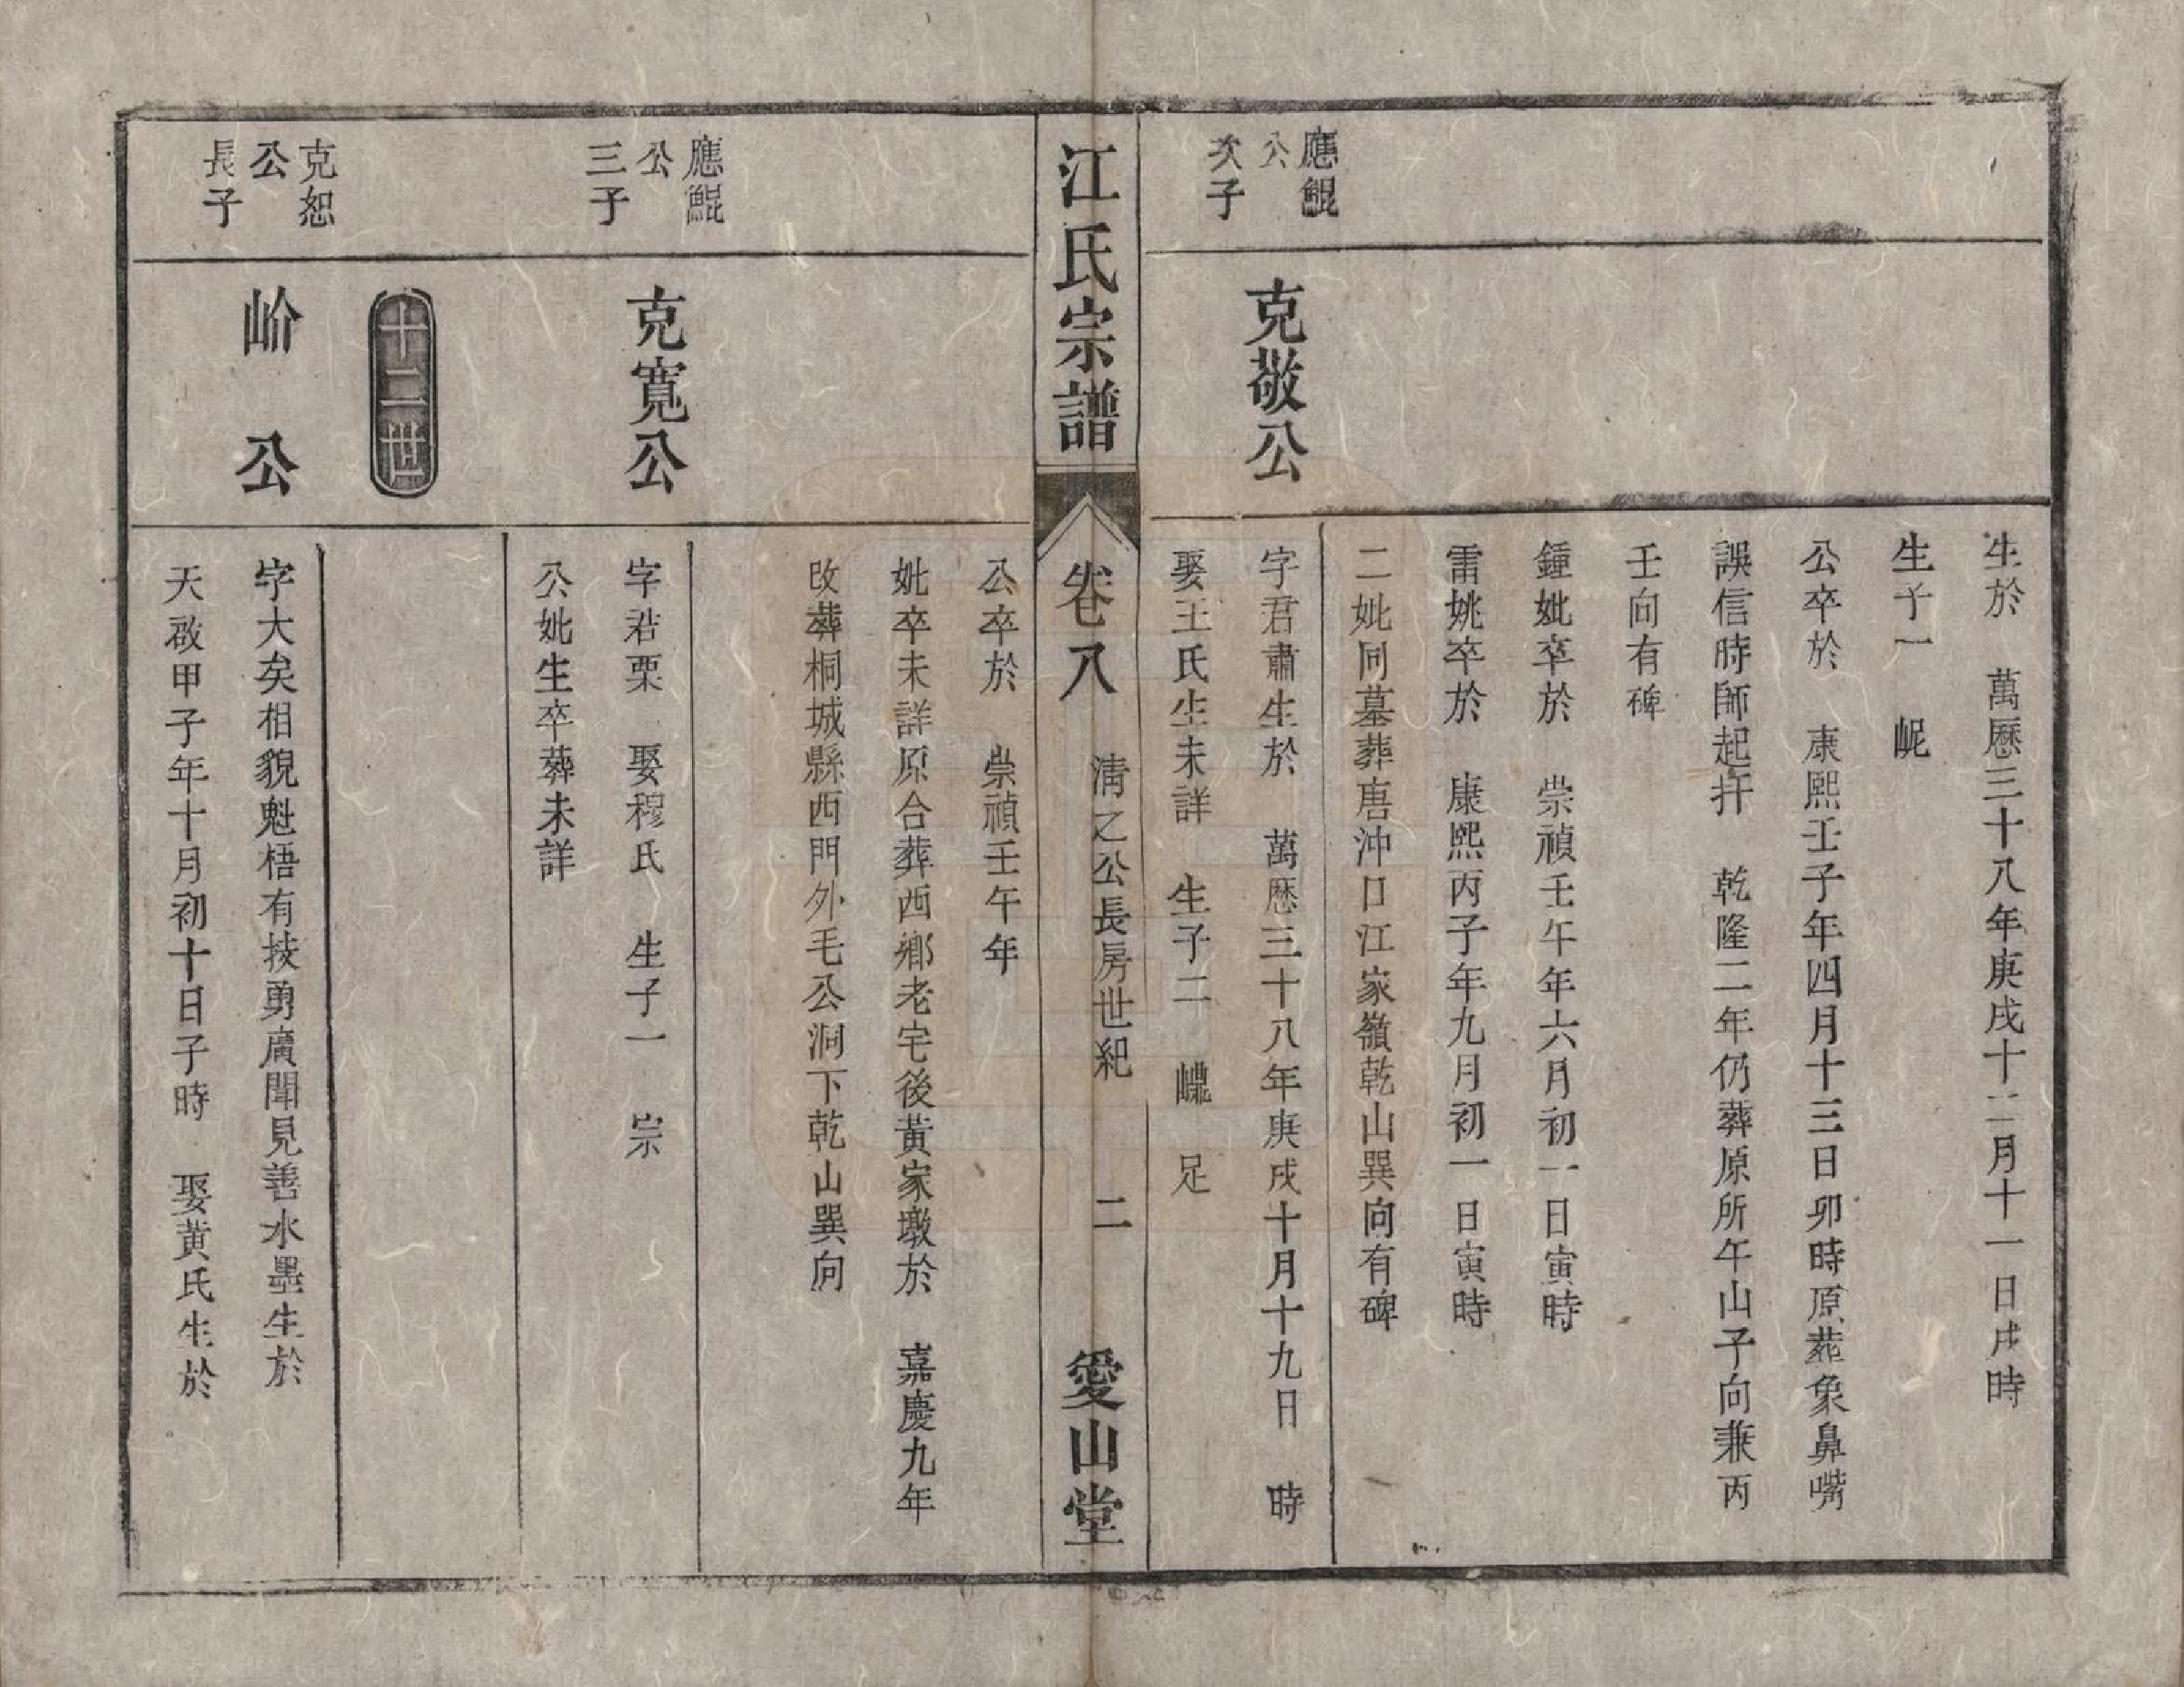 生於　萬歷三十八年庚戌十二月十一日戌時
生子一　岲
公卒於　康熙壬子年四月十三日卯時原葬象鼻嘴
誤信時師起扦　乾隆二年仍葬原所午山子向兼丙
壬向有碑
鍾妣卒於　崇禎壬午年六月初一日寅時
雷姚卒於　康熙丙子年九月初一日寅時
二妣同墓葬唐沖口江家嶺乾山巽向有碑
應鯤
公
次子
克敬公
字君肅生於　萬歷三十八年庚戌十月十九日　時
娶王氏生未詳　生子二　　足
江氏宗譜
卷八
清之公長房世紀
二
愛山堂
公卒於　崇禎壬午年
妣卒未詳原合葬西鄉老宅後黃家墩於　嘉慶九年
改葬桐城縣西門外毛公洞下乾山巽向
應鯤
公
三子
克寬公
字若栗　娶穆氏　生子一　崇
公妣生卒葬未詳
十二世
克恕
公
長子
崳公
字大矣相貌魁梧有技勇廣聞見善水墨生於
天啟甲子年十月初十日子時　娶黃氏生於